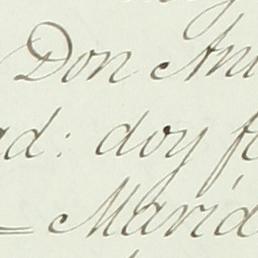 Don Ani
ad: doy fe
= Marid